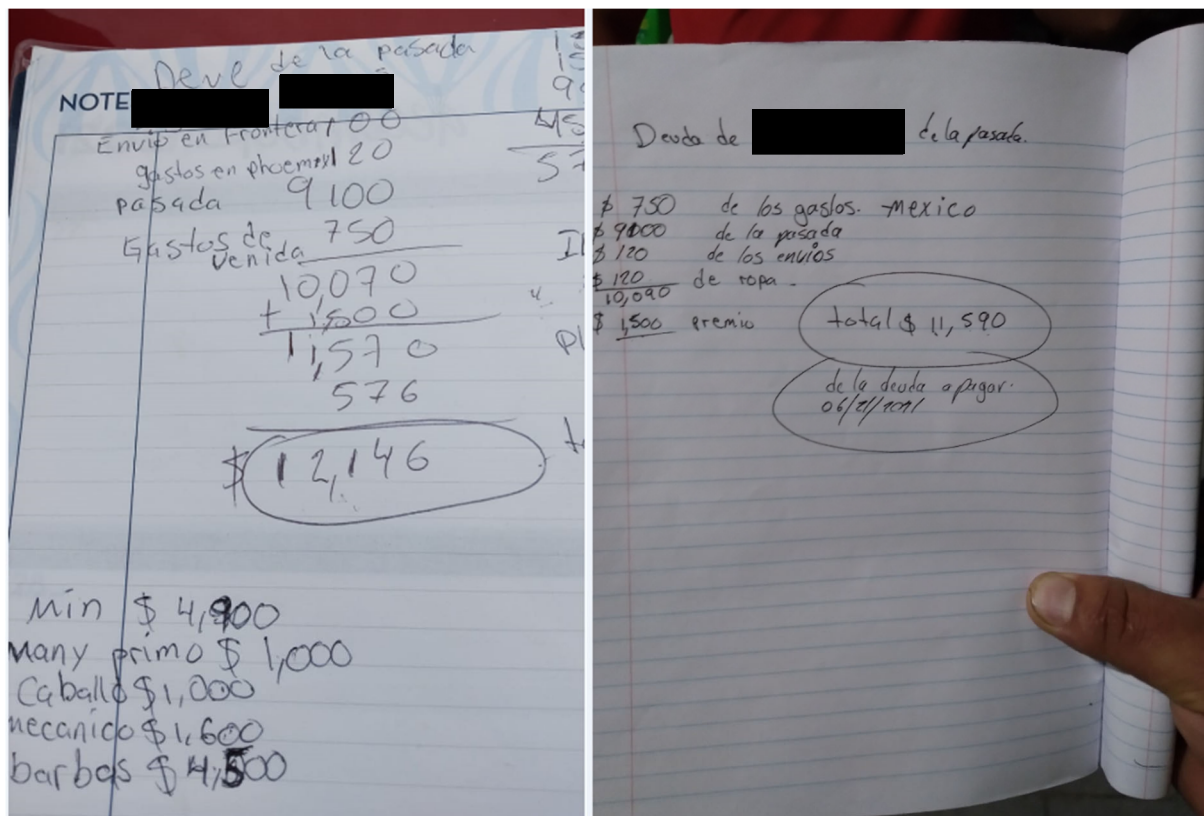 Deve de la pasada
NOTE
Envio en Frontera 100
gastos en phoemix 120
pasada 9100
Gastos de venida 750
10,070
+ 1,500
11,570
576
$ 12,146
Min $ 4,900
Many primo $ 1,000
Caballo $1,000
mecanico $1,600
barbas $4,500
57
Deuda de de la pasada.
$ 750 de los gastos. mexico
$ 9100 de la pasada
$ 120 de los envios
$ 120 de ropa.
10,090
$ 1,500 premio
total $ 11,590
de la deuda a pagar.